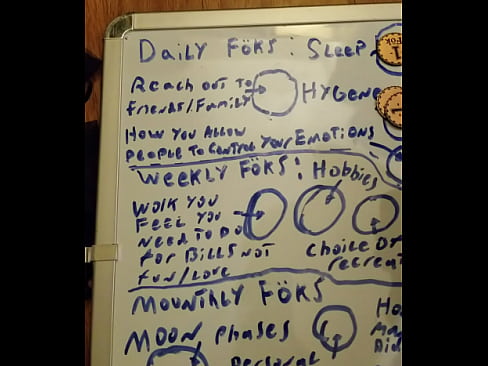 DAILY FÖKS: SLEEP
REACH OUT TO
FRIENDS/FAMILY
HYGENE
HOW YOU ALLOW
PEOPLE TO CONTROL YOUR EMOTIONS
WEEKLY FÖKS!
Hobbies
WORK YOU
FEEL YOU
NEED TO DO
FOR BILLS NOT
FUN/LOVE
CHOICE OF
MOUNTHLY FÖKS
MOON PHASES